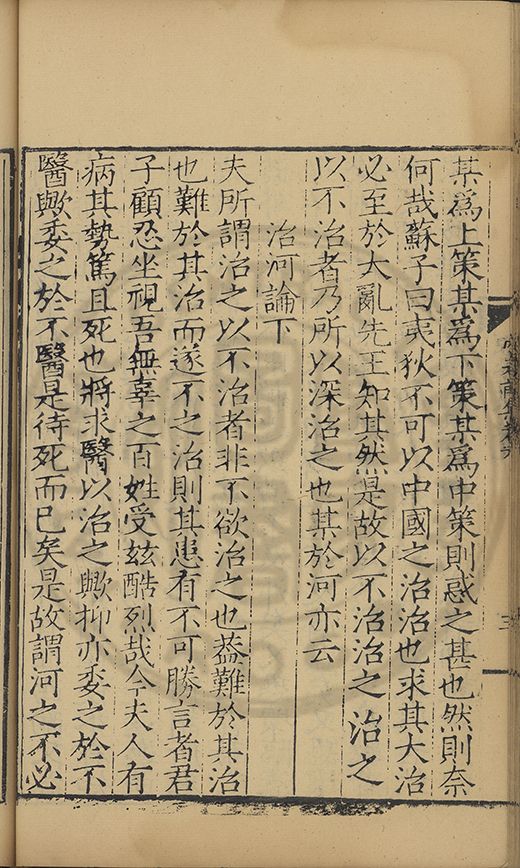 某爲上策某爲下策某爲中策則惑之甚也然則奈
何哉蘇子曰夷狄不可以中國之治治也求其大治
必至於大亂先王知其然是故以不治治之治之
以不治者乃所以深治之也其於河亦云
治河論下
夫所謂治之以不治者非不欲治之也蓋難於其治
也難於其治而遂不之治則其患有不可勝言者君
子顧忍坐視吾無辜之百姓受玆酷烈哉今夫人有
病其勢篤且死也將求醫以治之歟抑亦委之於不
醫歟委之於不醫是待死而已矣是故謂河之不必